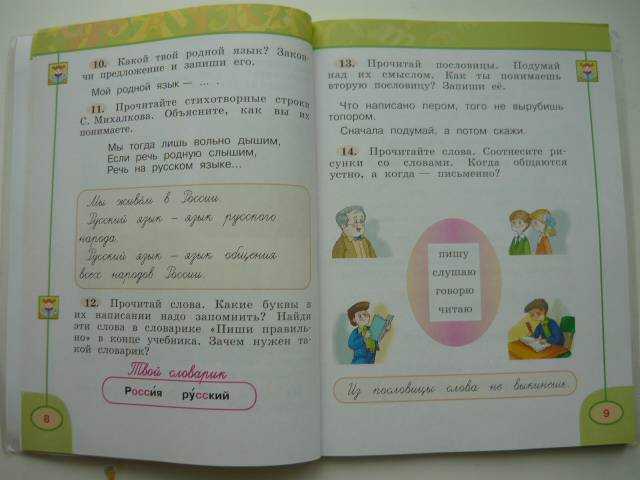 10. Какой твой родной язык? Закон-
чи предложение и запиши его.
Мой родной язык — ... .
11. Прочитайте стихотворные строки
С. Михалкова. Объясните, как вы их
понимаете.
Мы тогда лишь вольно дышим,
Если речь родную слышим,
Речь на русском языке...
Мы живём в России.
Русский язык – язык русского
народа.
Русский язык – язык общения
всех народов России.
12. Прочитай слова. Какие буквы в
их написании надо запомнить? Найди
эти слова в словарике «Пиши правиль-
но» в конце учебника. Зачем нужен та-
кой словарик?
Твой словарик
Росси́я ру́сский
8
13. Прочитай пословицы. Подумай
над их смыслом. Как ты понимаешь
вторую пословицу? Запиши её.
Что написано пером, того не вырубишь
топором.
Сначала подумай, а потом скажи.
14. Прочитайте слова. Соотнесите ри-
сунки со словами. Когда общаются
устно, а когда — письменно?
пишу
слушаю
говорю
читаю
Из пословицы слова не выкинешь.
9